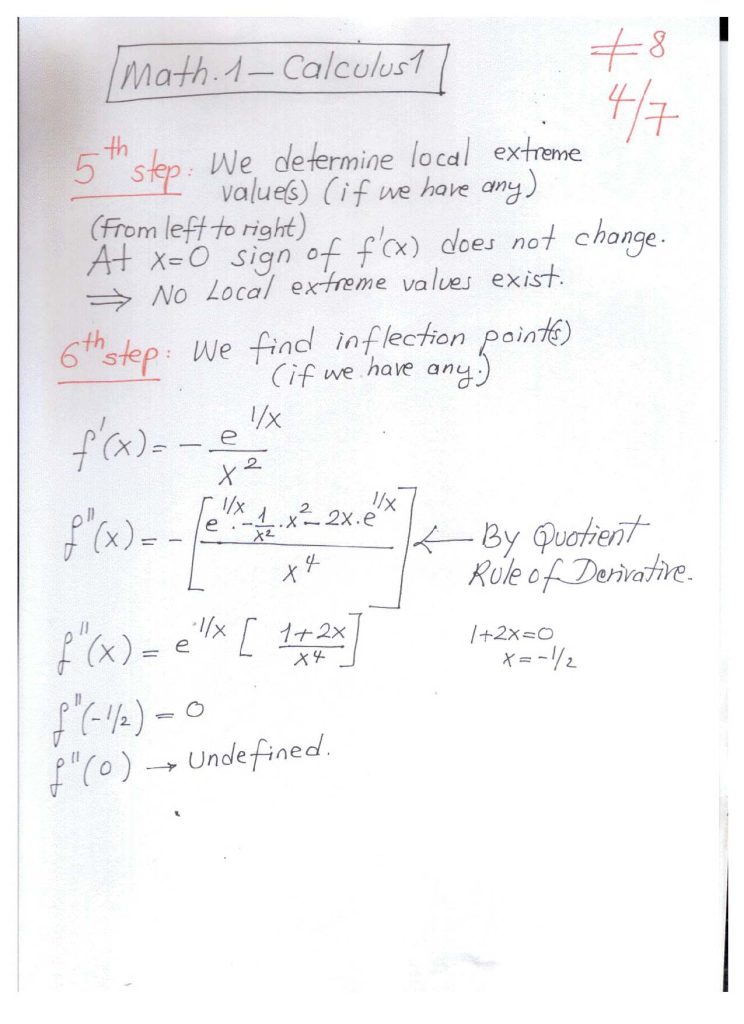 Math.1 – Calculus1
≠8
4/7
5th step: We determine local extreme
value(s) (if we have any)
(From left to right)
At x=0 sign of f'(x) does not change.
⟹ No Local extreme values exist.
6th step: We find inflection point(s)
(if we have any.)
f'(x) = - e^{1/x} / x^2
f''(x) = - [ (e^{1/x} · -1/x^2 · x^2 - 2x·e^{1/x}) / x^4 ] ← By Quotient
Rule of Derivative.
f''(x) = e^{1/x} [ (1+2x) / x^4 ]
1+2x=0
x=-1/2
f''(-1/2) = 0
f''(0) → Undefined.